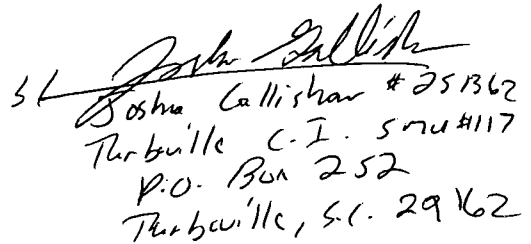 s/ Joshua Callisham
Joshua Callisham #251362
Turbeville C.I. SMU#117
P.O. Box 252
Turbeville, S.C. 29162